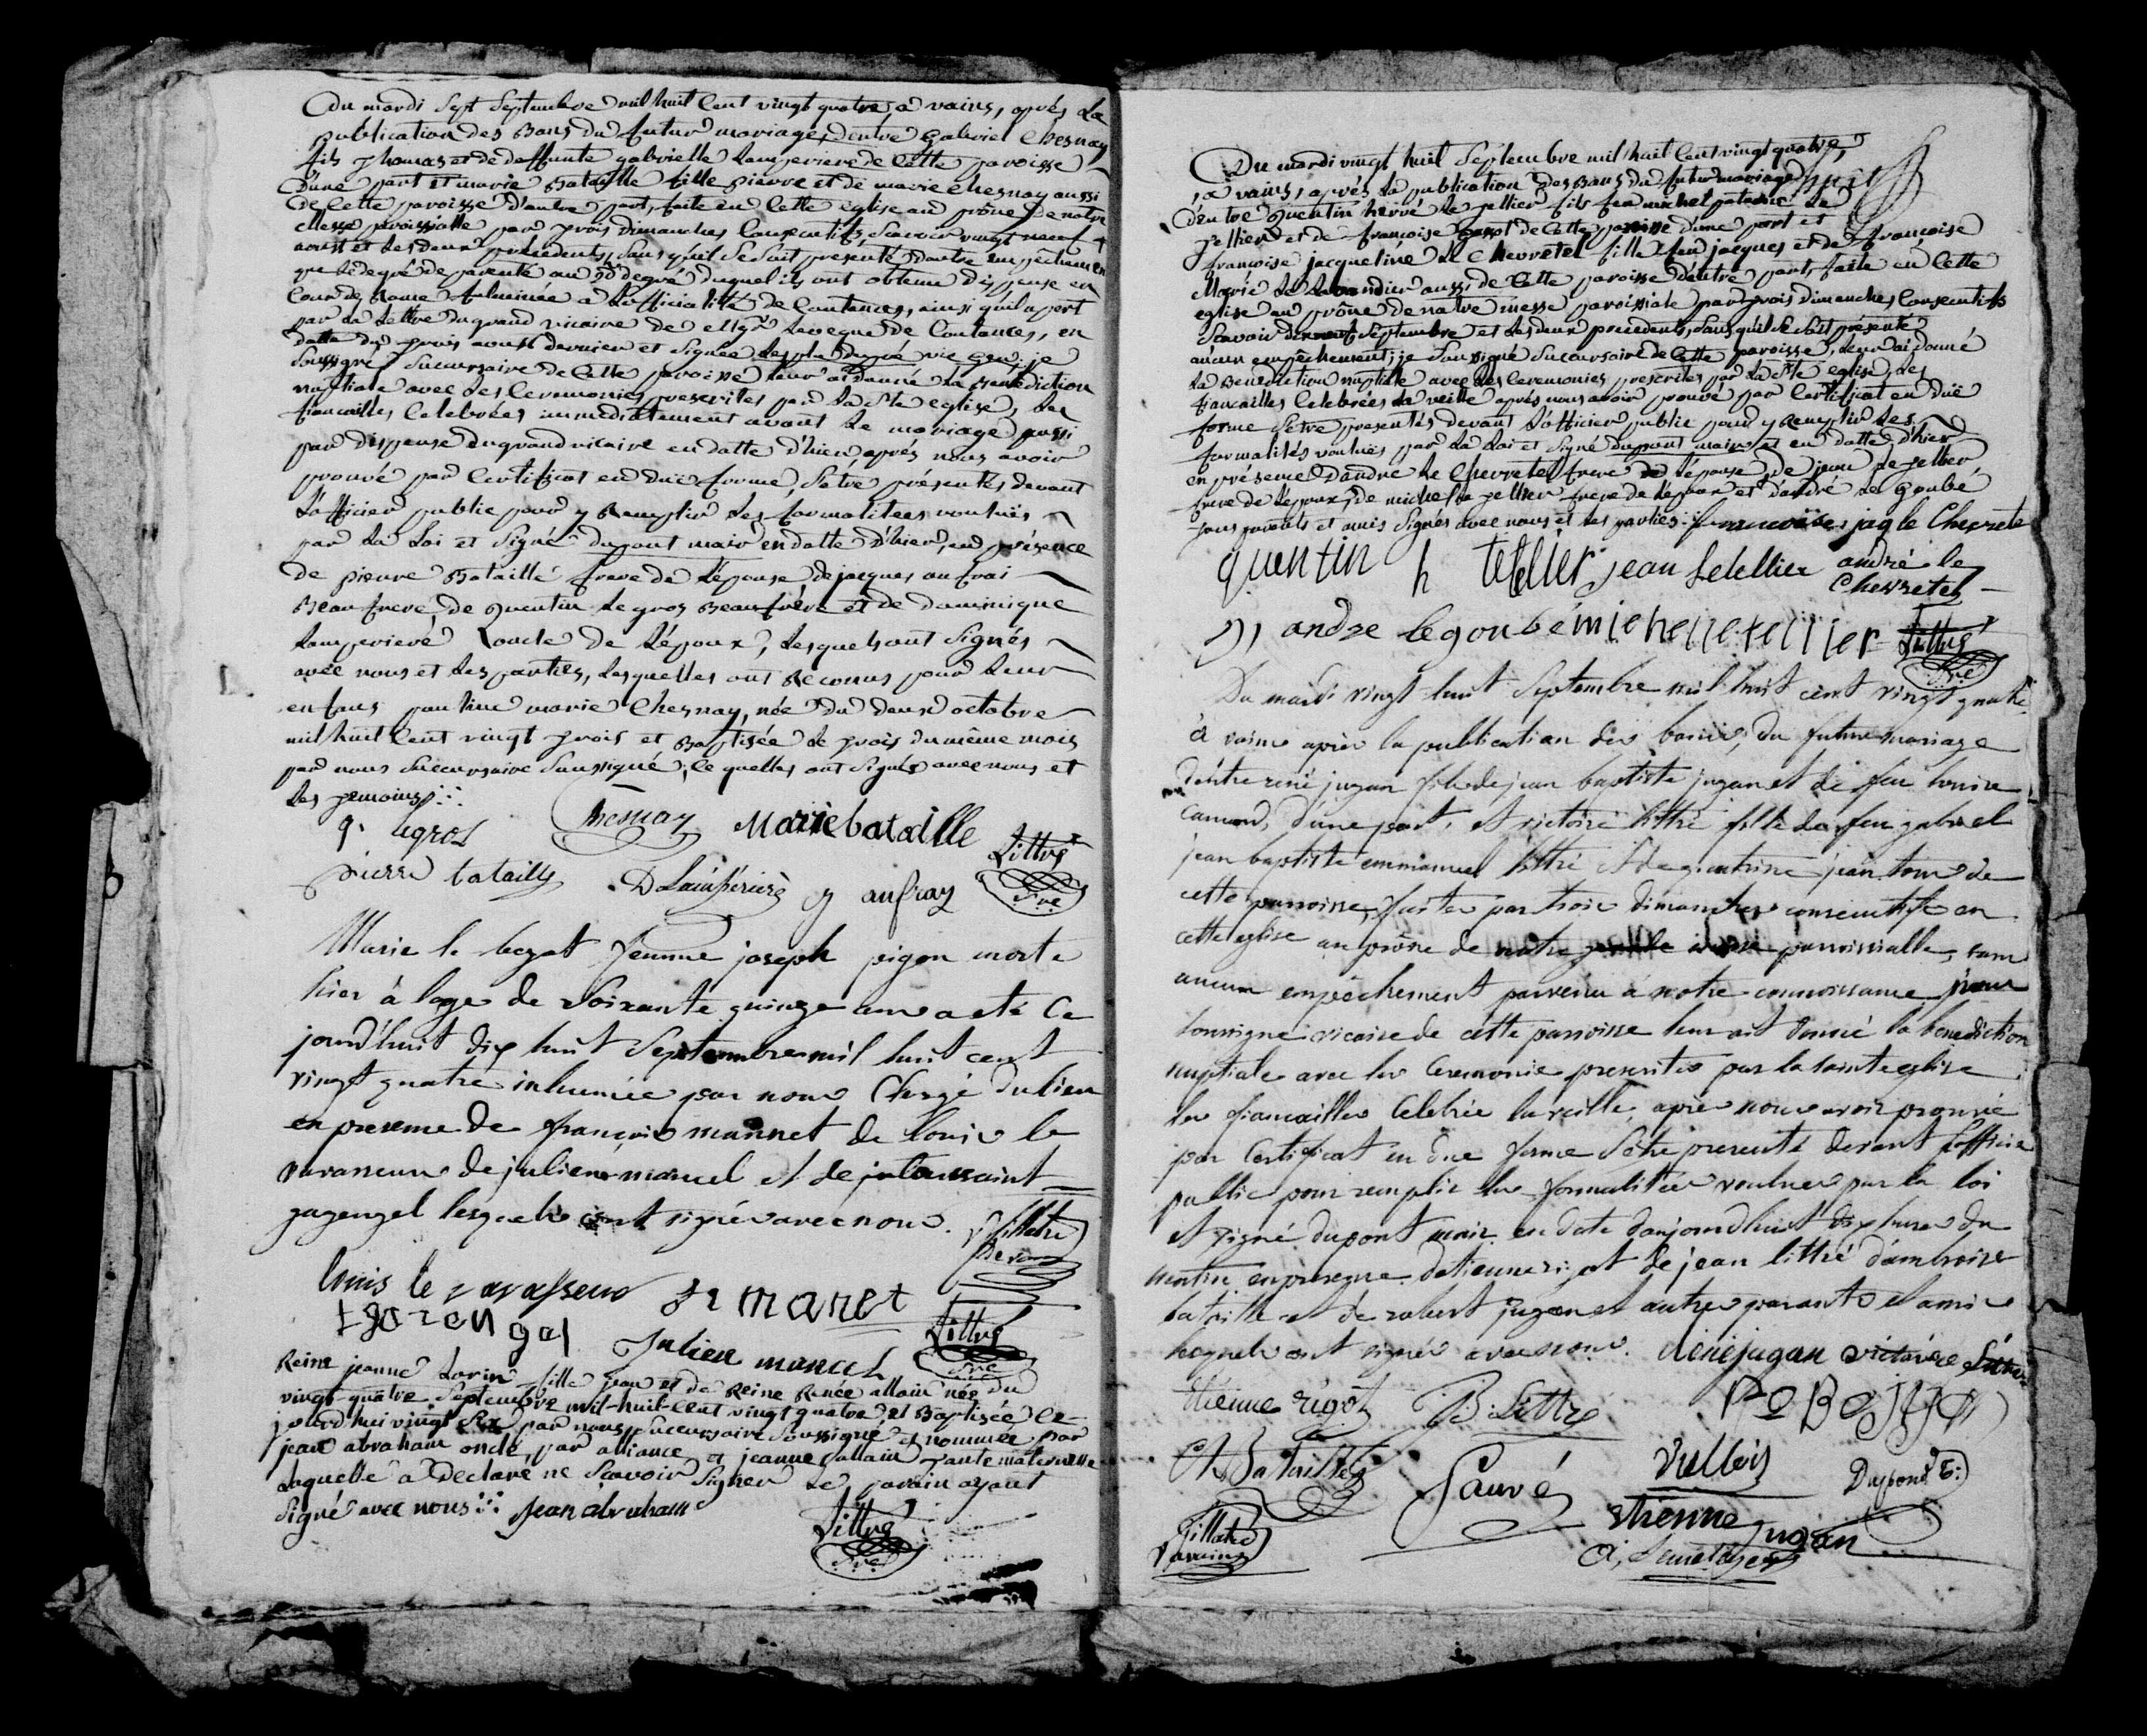 Du mardi Sept Septembre mil huit Cent vingt quatre, a vains, après La
publication des Bans du futur mariage, d'entre gabriel Chesnay
fils Thomas et de deffunte gabrielle Lamperiere de Cette paroisse
d'une part et marie Bataille fille pierre et de marie Chesnay aussi
de Cette paroisse d'autre part, faite en Cette eglise au prône de notre
Messe paroissialle par trois dimanches Consecutifs, Scavoir vingt neuf
aoust et Les deux précédents, Sans qu'il Se Soit présenté d'autre empêchement
que Le degré de parenté au degré duquel ils ont obtenu dispense en
Cour de Rome fulminée a L'officialité de Coutances, ainsi qu'il apert
par La Lettre du grand vicaire de Mgr Leveque de Coutances, en
datte du trois aoust dernier et Signée vic gen; je
Soussigné Succursaire de Cette paroisse Leur ai donné La Benediction
nuptiale avec Les Ceremonies prescrites par La Ste eglise, Les
fiancailles Celebrées immediatement avant Le mariage aussi
par dispense du grand vicaire en datte d'hier, après nous avoir
prouvé par Certificat en düe forme, S'etre présentés devant
L'officier public pour y Remplir Les formalitees vouluës
par La Loi et Signé dupont mair en datte d'hier, en présence
de pierre Bataille frere de L'épouse de jacques aufrai
Beau frere, de quentin Le gros Beau frère et de dominique
Lamperiere oncle de L'époux, Lesquels ont Signés
avec nous et Les parties, Lesquelles ont Reconnus pour Leur
enfans pauline marie Chesnay, née du deux octobre
mil huit Cent vingt trois et Baptisée Le trois du même mois
par nous Succursaire Soussigné, Lesquelles ont Signés avec nous et
Les temoins
q. legros Chesnay Marie bataille
pierre bataille D Lamperière J aufray Littré
Sre
Marie le bezot femme joseph pigeon morte
hier à lage de Soixante quinze ans a eté Ce
jourd'huit dix huit Septembre mil huit cent
vingt quatre inhumée par nous Chargé du lieu
en presence de françois mannet de louis le
vavasseur de julien manuel et de toussaint
gazengel lesquels ont signés avec nous.
louis le vavasseur fr manet
t gazengel Julien manuel Littré
Sre
Reine jeanne Lorin fille jean et de Reine Renée allain née du
vingt-quatre Septembre mil-huit-Cent vingt quatre, et Baptisée Ce
jourd'hui vingt Six par nous Succursaire Soussigné et nommée par
jean abraham oncle par alliance et jeanne allain tante maternelle
Laquelle a Declaré ne Scavoir Signer Le parain ayant
Signé avec nous jean abraham
Littré
Sre
Du mardi vingt huit Septembre mil huit Cent vingt quatre,
a vains, après La publication des Bans du futur mariage
d'entre quentin hervé Le tellier fils feu michel Le
tellier et de françoise de Cette paroisse d'une part et
françoise jacqueline Le Chevretel fille feu jacques et de françoise
Marie aussi de Cette paroisse d'autre part, faite en Cette
eglise au prône de notre messe paroissiale par trois dimanches Consecutifs
Scavoir dixneuf Septembre et Les deux précédents, Sans qu'il Se Soit présenté
aucun empêchement; je Soussigné Succursaire de Cette paroisse, Leur ai donné
La Benediction nuptiale avec Les Ceremonies prescrites par La Ste eglise, Les
fiancailles Celebrées La veille après nous avoir prouvé par Certificat en düe
forme S'etre présentés devant L'officier public pour y Remplir Les
formalités vouluës par La Loi et Signé dupont maire et en datte d'hier
en présence d'andre Le Chevretel frere de L'épouse, de jean Le tellier,
frere de L'epoux, de michel Le tellier frere de L'époux et d'andré Le Goubé
tous parents et amis Signés avec nous et Les parties françoise jaq le Chevretel
quentin h tellier jean Letellier andré le
Chevretel
andre legoubé michel le tellier Littré
Sre
Du mardi vingt huit Septembre mil huit cent vingt quatre
à vains après la publication des bans, du futur mariage
d'entre rené jugan fils de jean baptiste jugan et de feu louise
d'une part, et victoire littré fille de feu gabriel
jean baptiste emmanuel littré et de jeanne de
cette parroisse, faites par trois dimanches consecutifs en
cette eglise au prone de notre messe parroissialle, sans
aucun empêchement parvenu a notre connoissance nous
soussigné vicaire de cette parroisse leur ait donné la benediction
nuptiale avec les Ceremonies prescrites par la sainte eglise
les fiancailles Celebrée la veille, après nous avoir prouvé
par Certificat en due forme S'etre presenté devant l'officier
public pour remplir les formalitées voulues par la loi
et signé dupont mair en date d'aujourd'huit dix heures du
matin en presence d'etienne rigot de jean littré d'ambroise
bataille et de robert jugan et autres parants et amis
lesquels ont signés avec nous. réné jugan victoire Littré
Etienne rigot JB. Littré
A Bataille Sauvé Dupont
etienne jugan